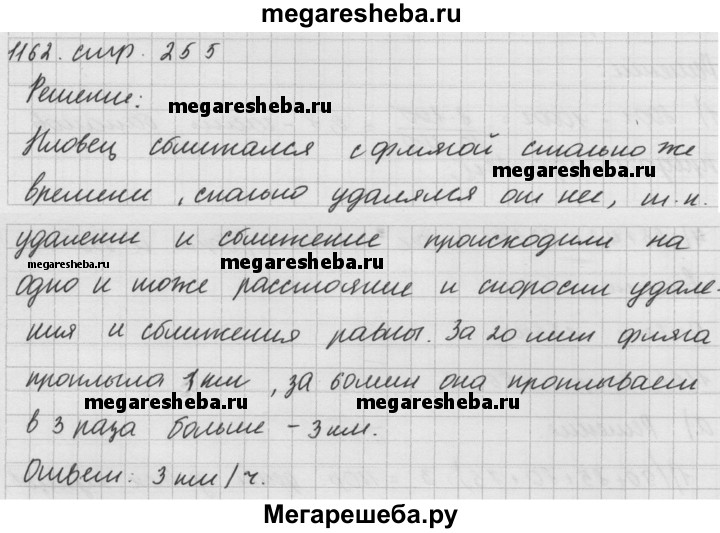 megaresheba.ru
1162. стр. 255
Решение:
megaresheba.ru
Пловец сближался с флягой столько же
megaresheba.ru
времени, сколько удалялся от нее, т.к.
удалении и сближение происходили на
megaresheba.ru megaresheba.ru
одно и тоже расстояние и скорости удале-
ния и сближения равны. За 20 мин фляга
проплыла 1 км, за 60 мин она проплывает
megaresheba.ru megaresheba.ru
в 3 раза больше - 3 км.
Ответ: 3 км/ч.
Мегарешеба.ру